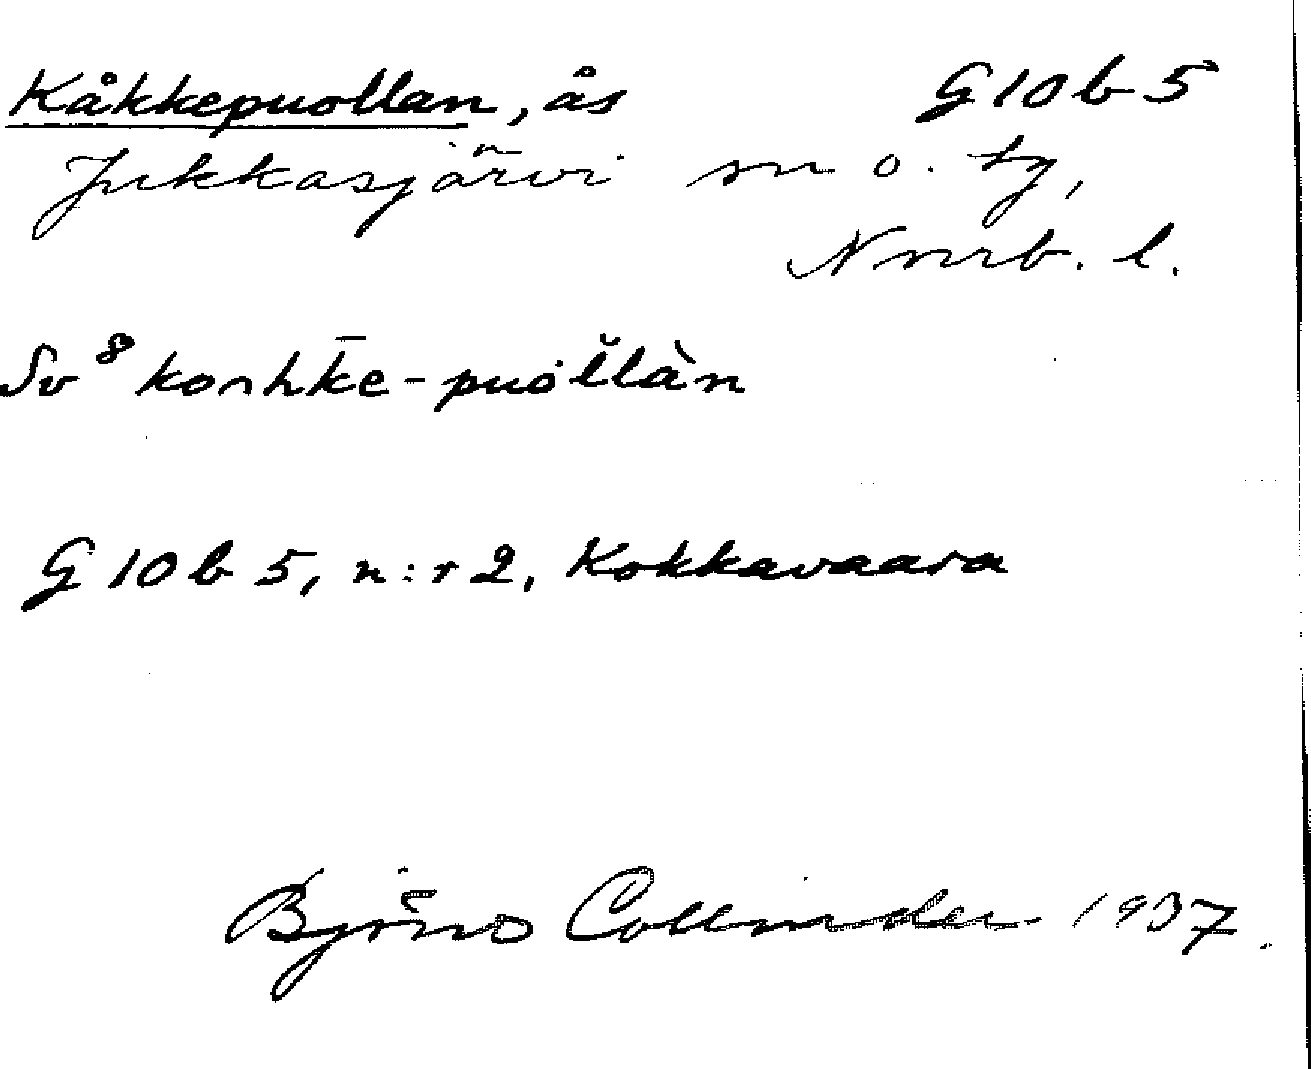 Kåkkepuollan, ås G10b5
Jukkasjärvi sn o. tg,
Norrb. l.
Sv⁸ koshk̄e-puöl̆làn
G10b5, n:r 2, Kokkavaara
Björn Collinder 1937.